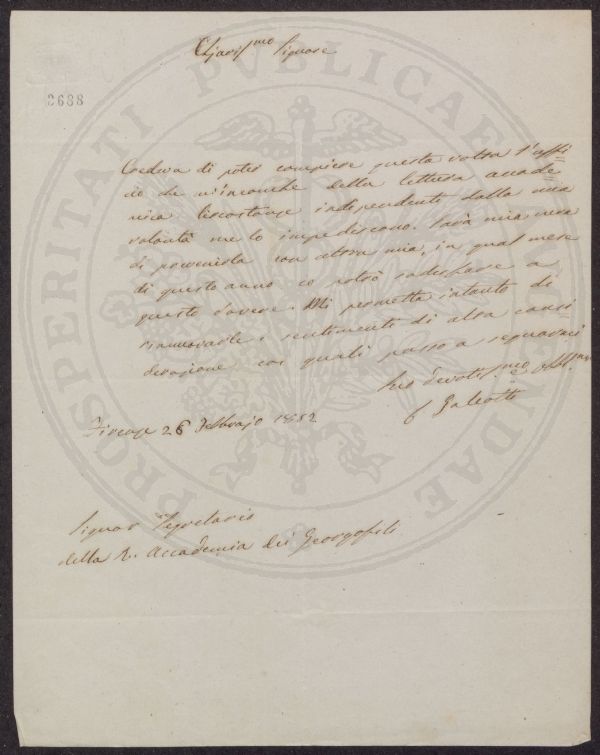 Chiariss.mo Signore
2688
Credeva di poter compiere questa volta l'uffi=
cio che m'incombe della lettura accade=
mica. Circostanze indipendenti dalla mia
volontà me lo impediscono. Sarà mia cura
di prevenirla con altra mia, in qual mese
di questo anno io potrò sodisfare a
questo dovere. Mi permetta intanto di
rinnuovarle i sentimenti di alta consi=
derazione coi quali passo a segnarmi
Suo devotis.mo e obbl.mo
Galeotti
Firenze 26 Febbrajo 1852
Signor Segretario
della R. Accademia dei Georgofili
PROSPERITATI PUBLICAE AUGENDAE